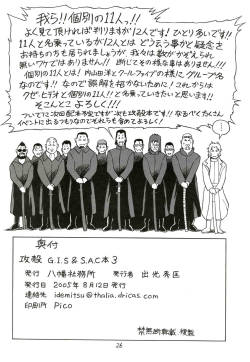 我ら!!個別の11人。!!
よく見て頂ければ判りますが「12人です」!ひとり多いです!!
11人と名乗っているが「12人」とは どう云う事かと疑念を
お持ちの方も居られましょうが 我々は数がかぞえられ
無いワケではありません!! 断じてその様な事はありません!!!
個別の11人とは! 内山田洋とクール・ファイブの様に グループ名
なのです!! なので 誤解を招かないために! これからは
クゼ・ヒデオと個別の11人!!と名乗っていきたいと思います!
そこんとこ よろしく!!!
奥付
攻殻 G.I.S & S.A.C本3
発行 八幡社務所 発行者 出光秀匡
発行日 2005年8月12日発行
連絡先 idemitsu@thalia.dricas.com
印刷所 Pico
禁無断転載・複製
26